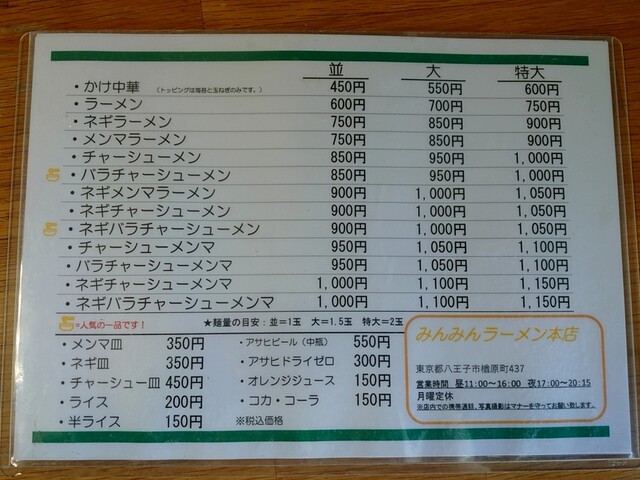 並 大 特大
・かけ中華 (トッピングは海苔と玉ねぎのみです。) 450円 550円 600円
・ラーメン 600円 700円 750円
・ネギラーメン 750円 850円 900円
・メンマラーメン 750円 850円 900円
・チャーシューメン 850円 950円 1,000円
・バラチャーシューメン 850円 950円 1,000円
・ネギメンマラーメン 900円 1,000円 1,050円
・ネギチャーシューメン 900円 1,000円 1,050円
・ネギバラチャーシューメン 900円 1,000円 1,050円
・チャーシューメンマ 950円 1,050円 1,100円
・バラチャーシューメンマ 950円 1,050円 1,100円
・ネギチャーシューメンマ 1,000円 1,100円 1,150円
・ネギバラチャーシューメンマ 1,000円 1,100円 1,150円
=人気の一品です！ ★麺量の目安：並=1玉 大=1.5玉 特大=2玉
・メンマ皿 350円
・ネギ皿 350円
・チャーシュー皿 450円
・ライス 200円
・半ライス 150円
・アサヒビール（中瓶） 550円
・アサヒドライゼロ 300円
・オレンジジュース 150円
・コカ・コーラ 150円
※税込価格
みんみんラーメン本店
東京都八王子市楢原町437
営業時間 昼11:00～16:00 夜17:00～20:15
月曜定休
※店内での携帯通話、写真撮影はマナーを守ってお願い致します。